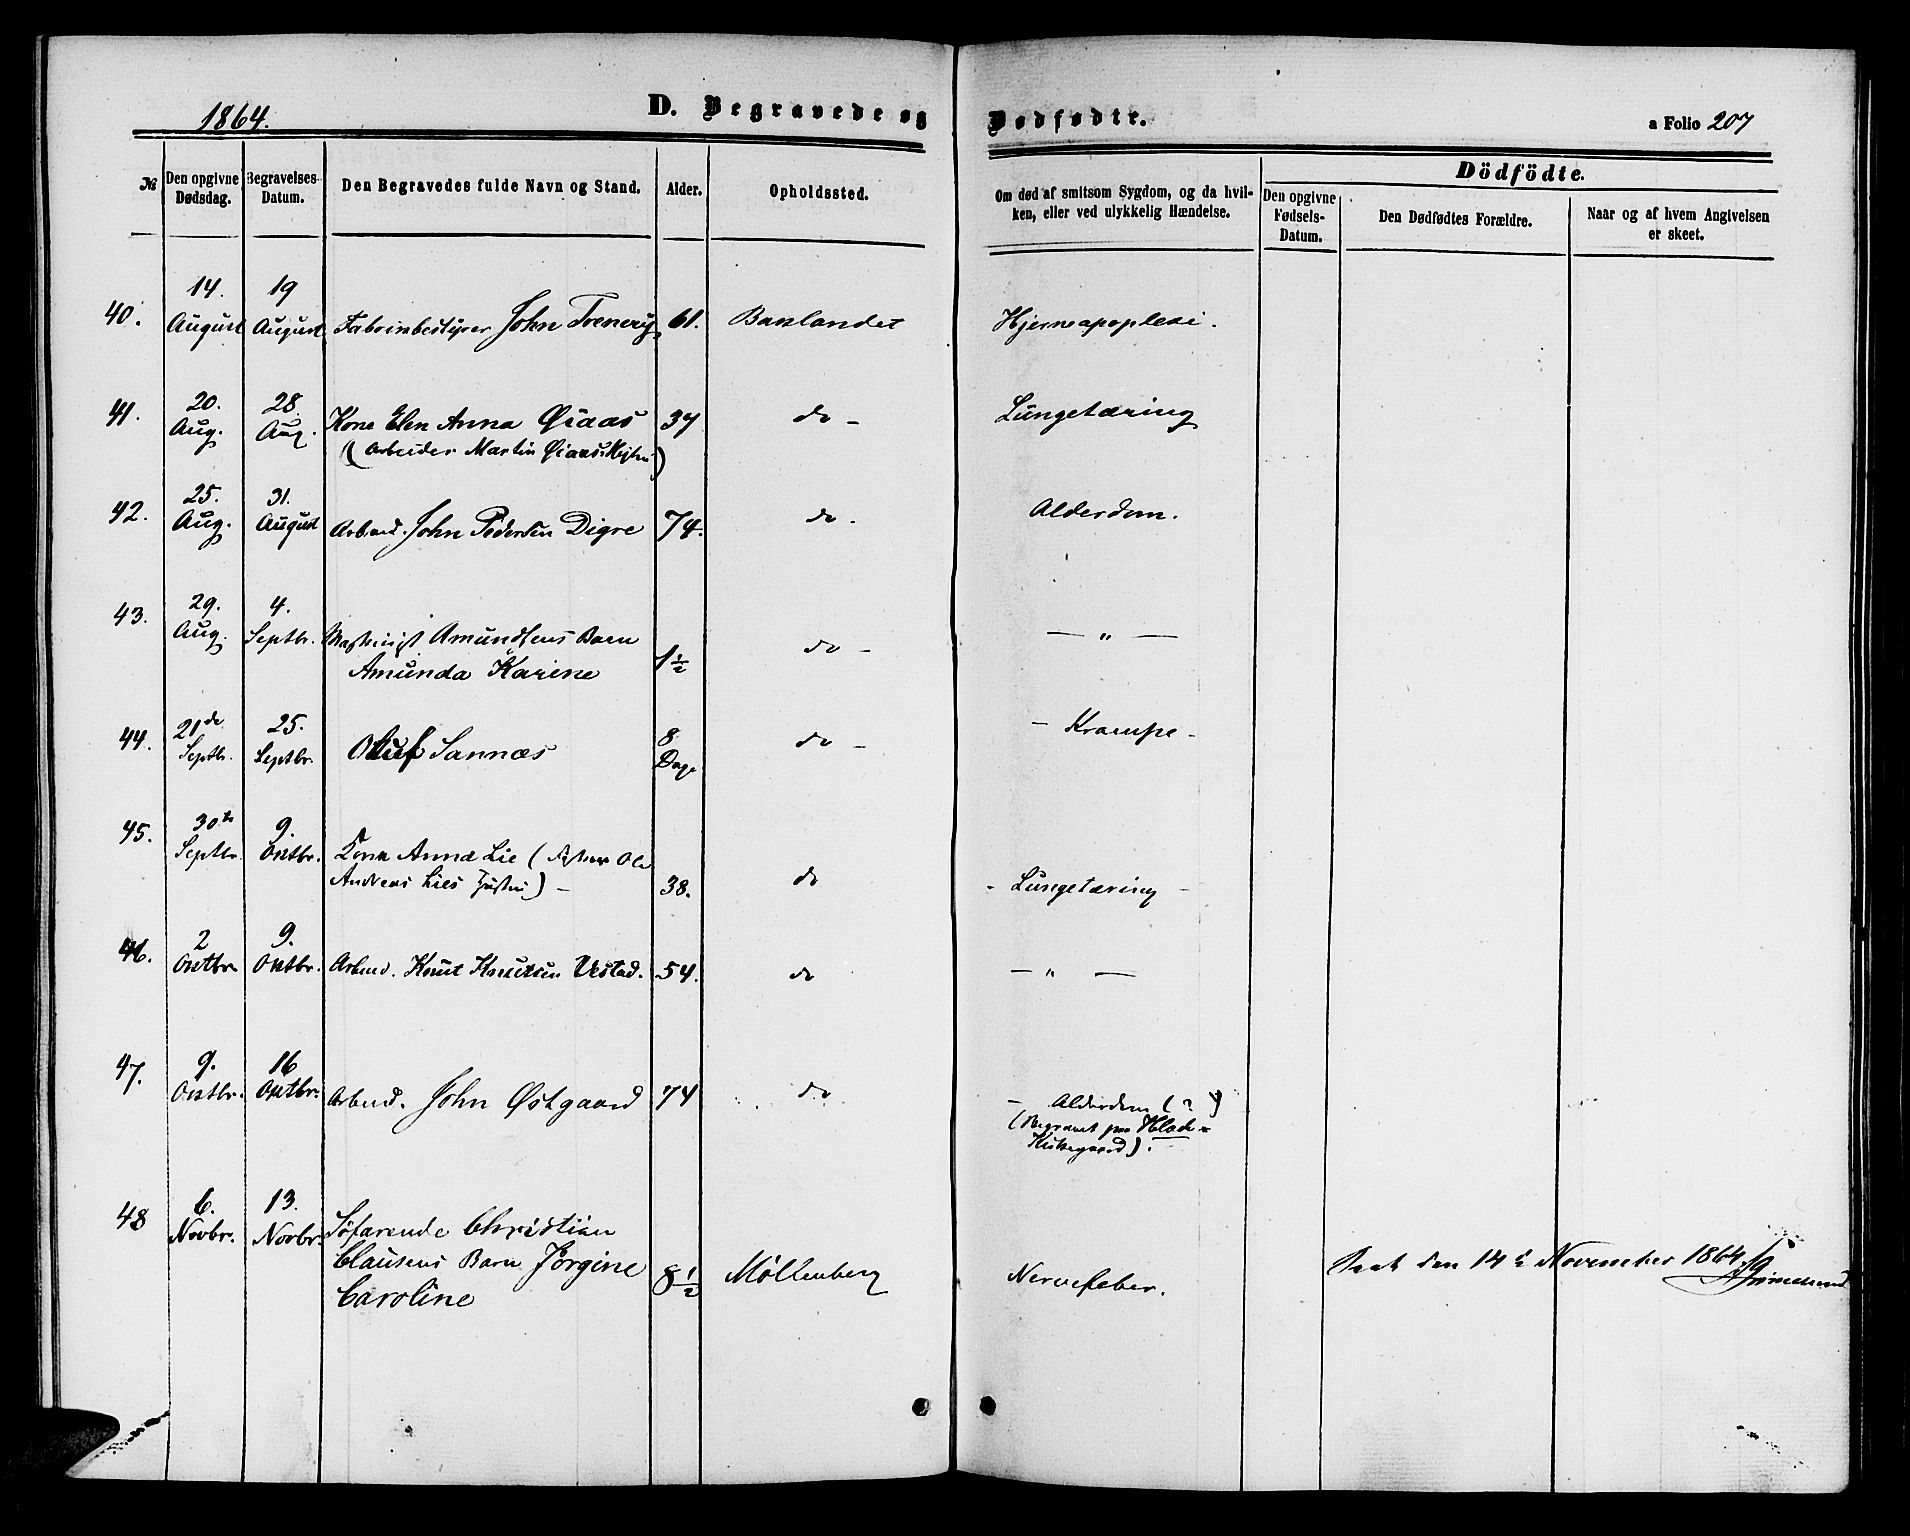 1864.
D. Begravede og Dødfødte.
a Folio 207
№
Den opgivne Dødsdag.
Begravelses-Datum.
Den Begravedes fulde Navn og Stand.
Alder.
Opholdssted.
Om død af smitsom Sygdom, og da hvilken, eller ved ulykkelig Hændelse.
Dödfödte.
Den opgivne Fødsels-Datum.
Den Dødfødtes Forældre.
Naar og af hvem Angivelsen er skeet.
40. 14. August 19 August Fabrikbestyrer John Trenery 61. Baklandet Hjerneapoplexi.
41. 20. Aug. 28. Aug. Kone Elen Anna Øiaas 37 do - Lungetæring
(Arbeider Martin Øiaas )
42. 25. Aug. 31. August Arbeid. John Pedersen Digre 74. do - Alderdom.
43. 29. Aug. 4. Septbr. Amundsens Barn
Amunda Karine 1½ do - — " —
44. 21de Septbr. 25. Septbr. Oluf Sannæs 8 Dage do - - Krampe -
45. 30te Septbr. 9. Oktbr. Kone Anna Lie ( Ole
Andreas Lies Hustru) - 38. do - Lungetæring -
46. 2 Oktbr. 9. Oktbr. Arbeid. Knut Knutsen Vestad. 54. do — " —
47. 9. Oktbr. 16 Oktbr. Arbeid. John Østgaard 74 do - Alderdom (?)
(Begravet paa Hlade-
Kirkegaard).
48 6. Novbr. 13. Novbr. Søfarende Christian
Clausens Barn Jørgine
Caroline 8½ Møllenberg Nervefeber.
Seet den 14de November 1864